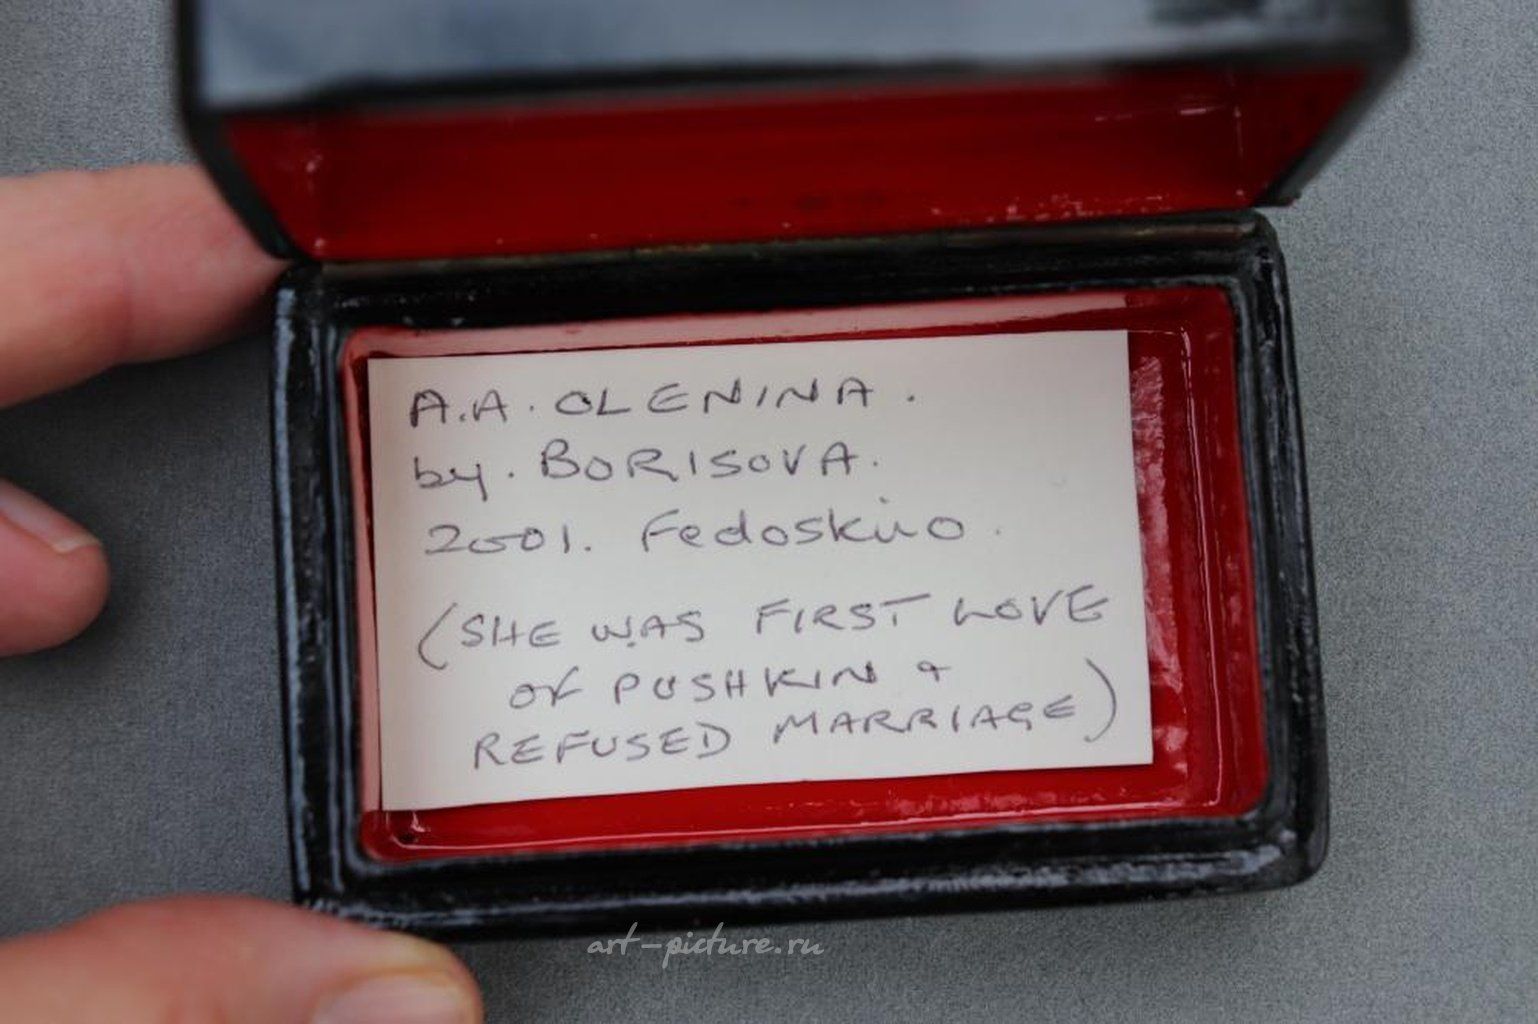 A.A. OLENINA.
by. BORISOVA.
2001. Fedoskino.
(SHE WAS FIRST LOVE
OF PUSHKIN &
REFUSED MARRIAGE)
art-picture.ru